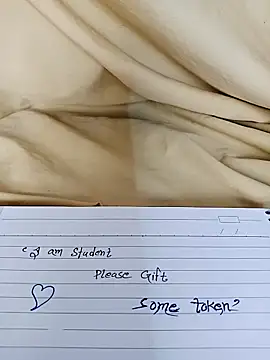 "I am Student
Please Gift
Some token?